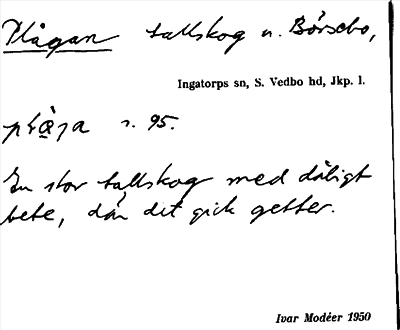 Plågan tallskog n. Börsebo,
Ingatorps sn, S. Vedbo hd, Jkp. l.
s. 95.
En stor tallskog med dåligt
bete, där det gick getter.
Ivar Modéer 1950